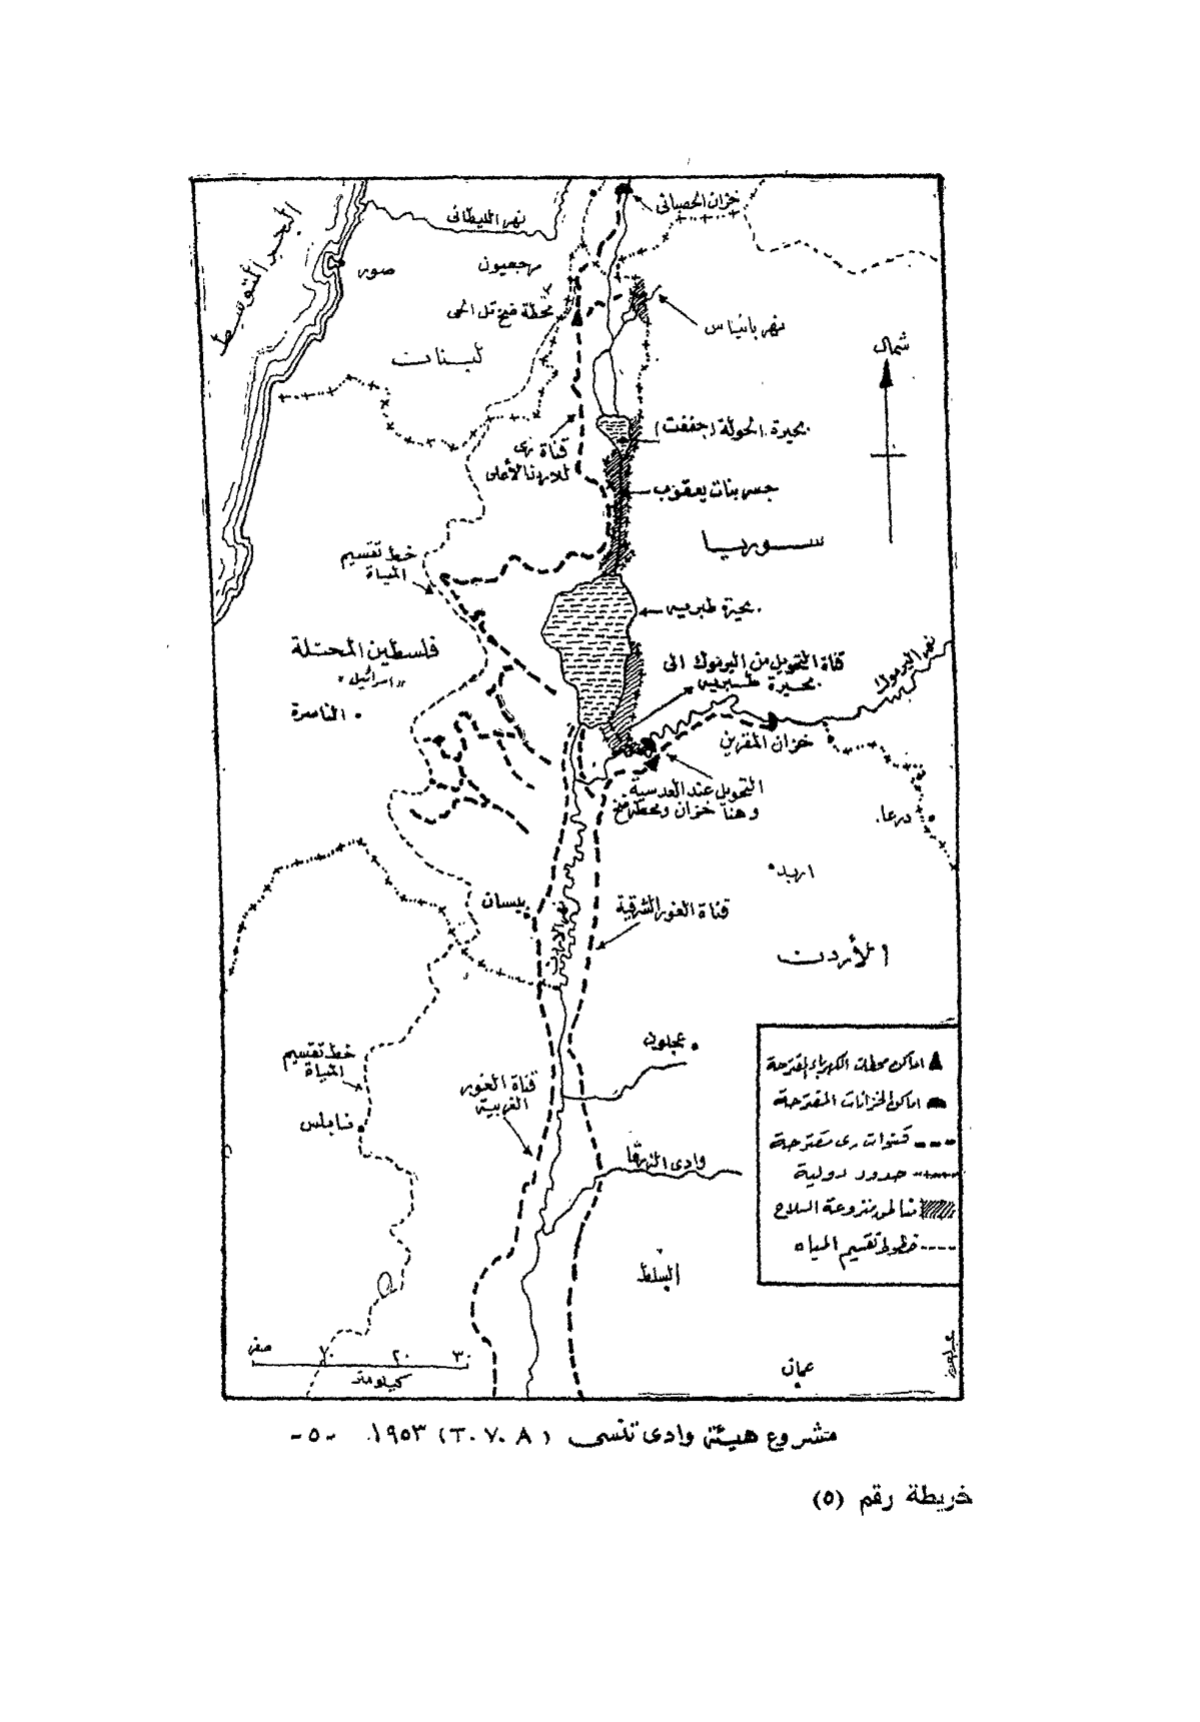 خزان الحصبانى
نهر الليطانى
البحر المتوسط
صور
مرجعيون
محطة ضخ تل الحى
نهر بانياس
شمال
لبنان
بحيرة الحولة (جففت)
قناة رى
للاردن الأعلى
جسر بنات يعقوب
سوريا
خط تقسيم
المياة
بحيرة طبريه
فلسطين المحتلة
"اسرائيل"
الناصرة
نهر اليرموك
قناة التحويل من اليرموك الى
بحيرة طبريه
خزان المقرين
التحويل عند العدسية
وهنا خزان ومحطة ضخ
درعا
اربد
بيسان
قناة الغور الشرقية
نهر الاردن
الأردن
عجلون
خط تقسيم
المياة
قناة الغور
الغربية
نابلس
وادى الزرقا
السلط
اماكن محطات الكهرباء المقترحة
اماكن الخزانات المقترحة
قنوات رى مقترحة
حدود دولية
مناطق منزوعة السلاح
خطوط تقسيم المياه
صفر ١٠ ٢٠ ٣٠
كيلومتر
عمان
مشروع هيئة وادى تنسى (T. V. A) ١٩٥٣. -٥-
خريطة رقم (٥)